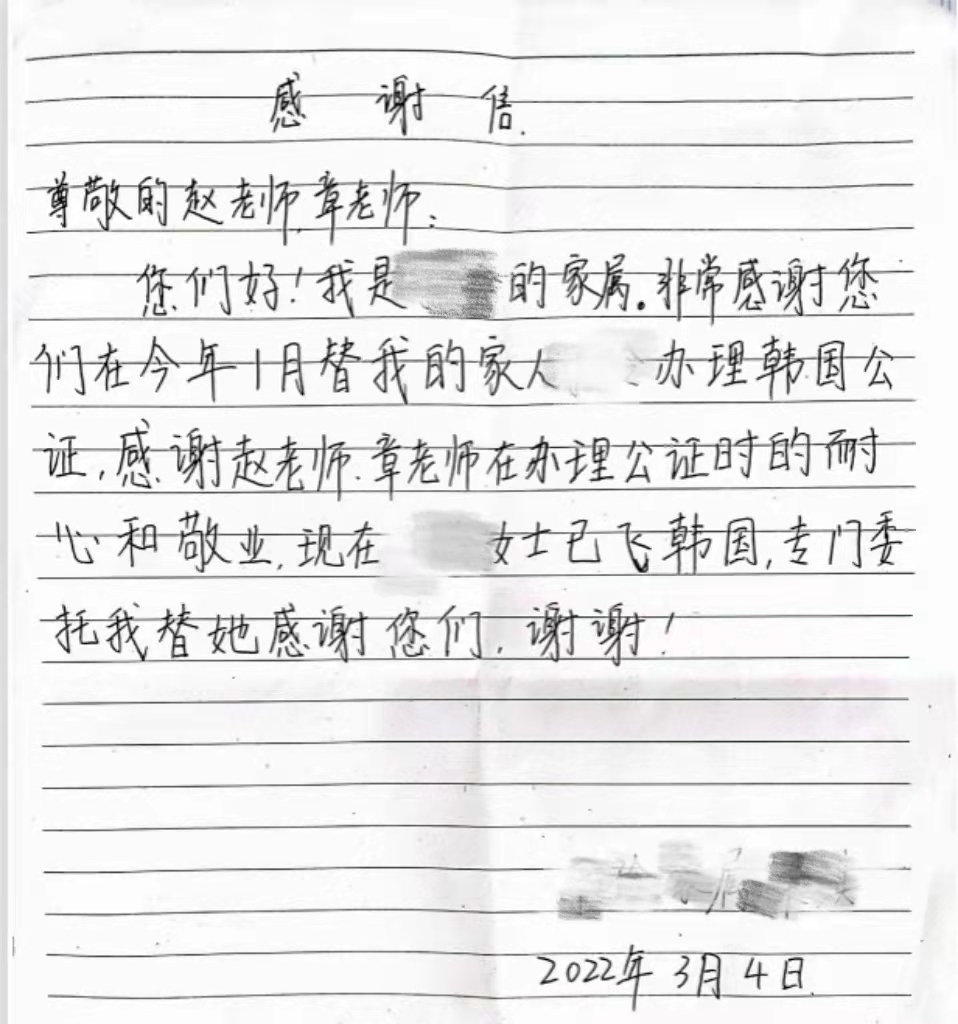 感谢信.
尊敬的赵老师,章老师:
您们好!我是 的家属。非常感谢您
们在今年1月替我的家人 办理韩国公
证,感谢赵老师.章老师在办理公证时的耐
心和敬业,现在 女士已飞韩国,专门委
托我替她感谢您们,谢谢!
家属
2022年3月4日.